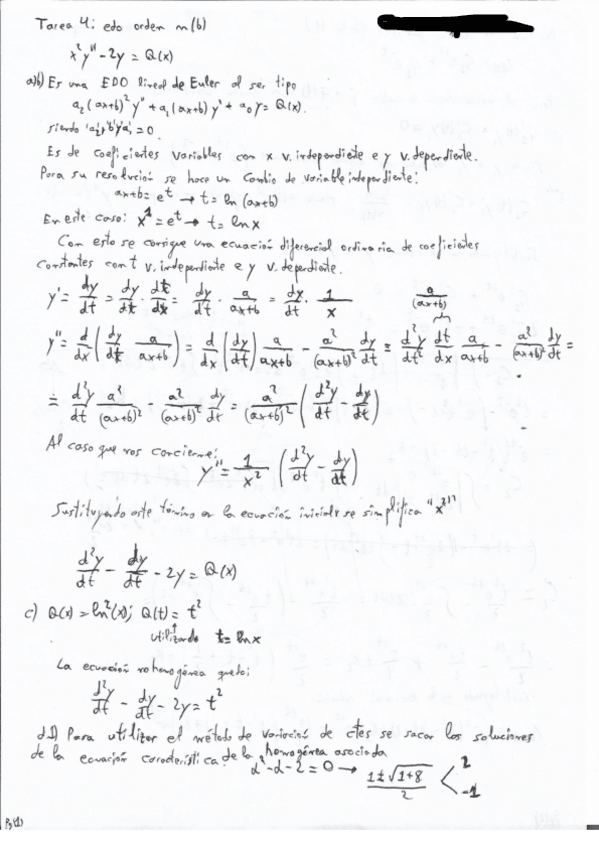 Tarea 4: edo orden n(b)
x²y'' - 2y = Q(x)
a)b) Es una EDO lineal de Euler al ser tipo
a₂(ax+b)²y'' + a₁(ax+b)y' + a₀y = Q(x).
siendo 'a₁' y 'b' = 0.
Es de coeficientes variables con x v. independiente e y v. dependiente.
Para su resolución se hace un cambio de variable independiente:
ax+b = e^t → t = ln(ax+b)
En este caso: x^1 = e^t → t = lnx
Con esto se consigue una ecuación diferencial ordinaria de coeficientes
constantes con t v. independiente e y v. dependiente.
y' = dy/dt = dy/dt · dt/dx = dy/dt · a/(ax+b) = dy/dt · 1/x
a/(ax+b)
y'' = d/dx (dy/dt a/(ax+b)) = d/dx (dy/dt) a/(ax+b) - a²/(ax+b)² dy/dt = d²y/dt² dt/dx a/(ax+b) - a²/(ax+b)² dy/dt =
= d²y/dt a²/(ax+b)² - a²/(ax+b)² dy/dt = a²/(ax+b)² (d²y/dt - dy/dt)
Al caso que nos concierne:
y'' = 1/x² (d²y/dt - dy/dt)
Sustituyendo este término en la ecuación inicial se simplifica "x²"
d²y/dt - dy/dt - 2y = Q(x)
c) Q(x) = ln²(x); Q(t) = t²
utilizando t = lnx
La ecuación no homogénea queda:
d²y/dt - dy/dt - 2y = t²
d1) Para utilizar el método de variación de ctes se sacan las soluciones
de la ecuación característica de la homogénea asociada
α² - α - 2 = 0 → (1±√(1+8))/2 < 2
-1
Pg(1)